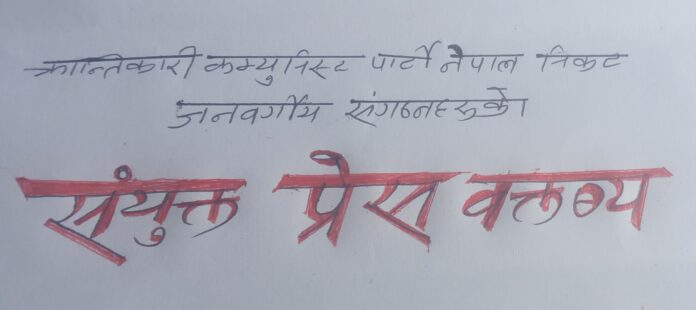 क्रान्तिकारी कम्युनिस्ट पार्टी नेपाल निकट
जनवर्गीय संगठनहरुको
संयुक्त प्रेस वक्तव्य